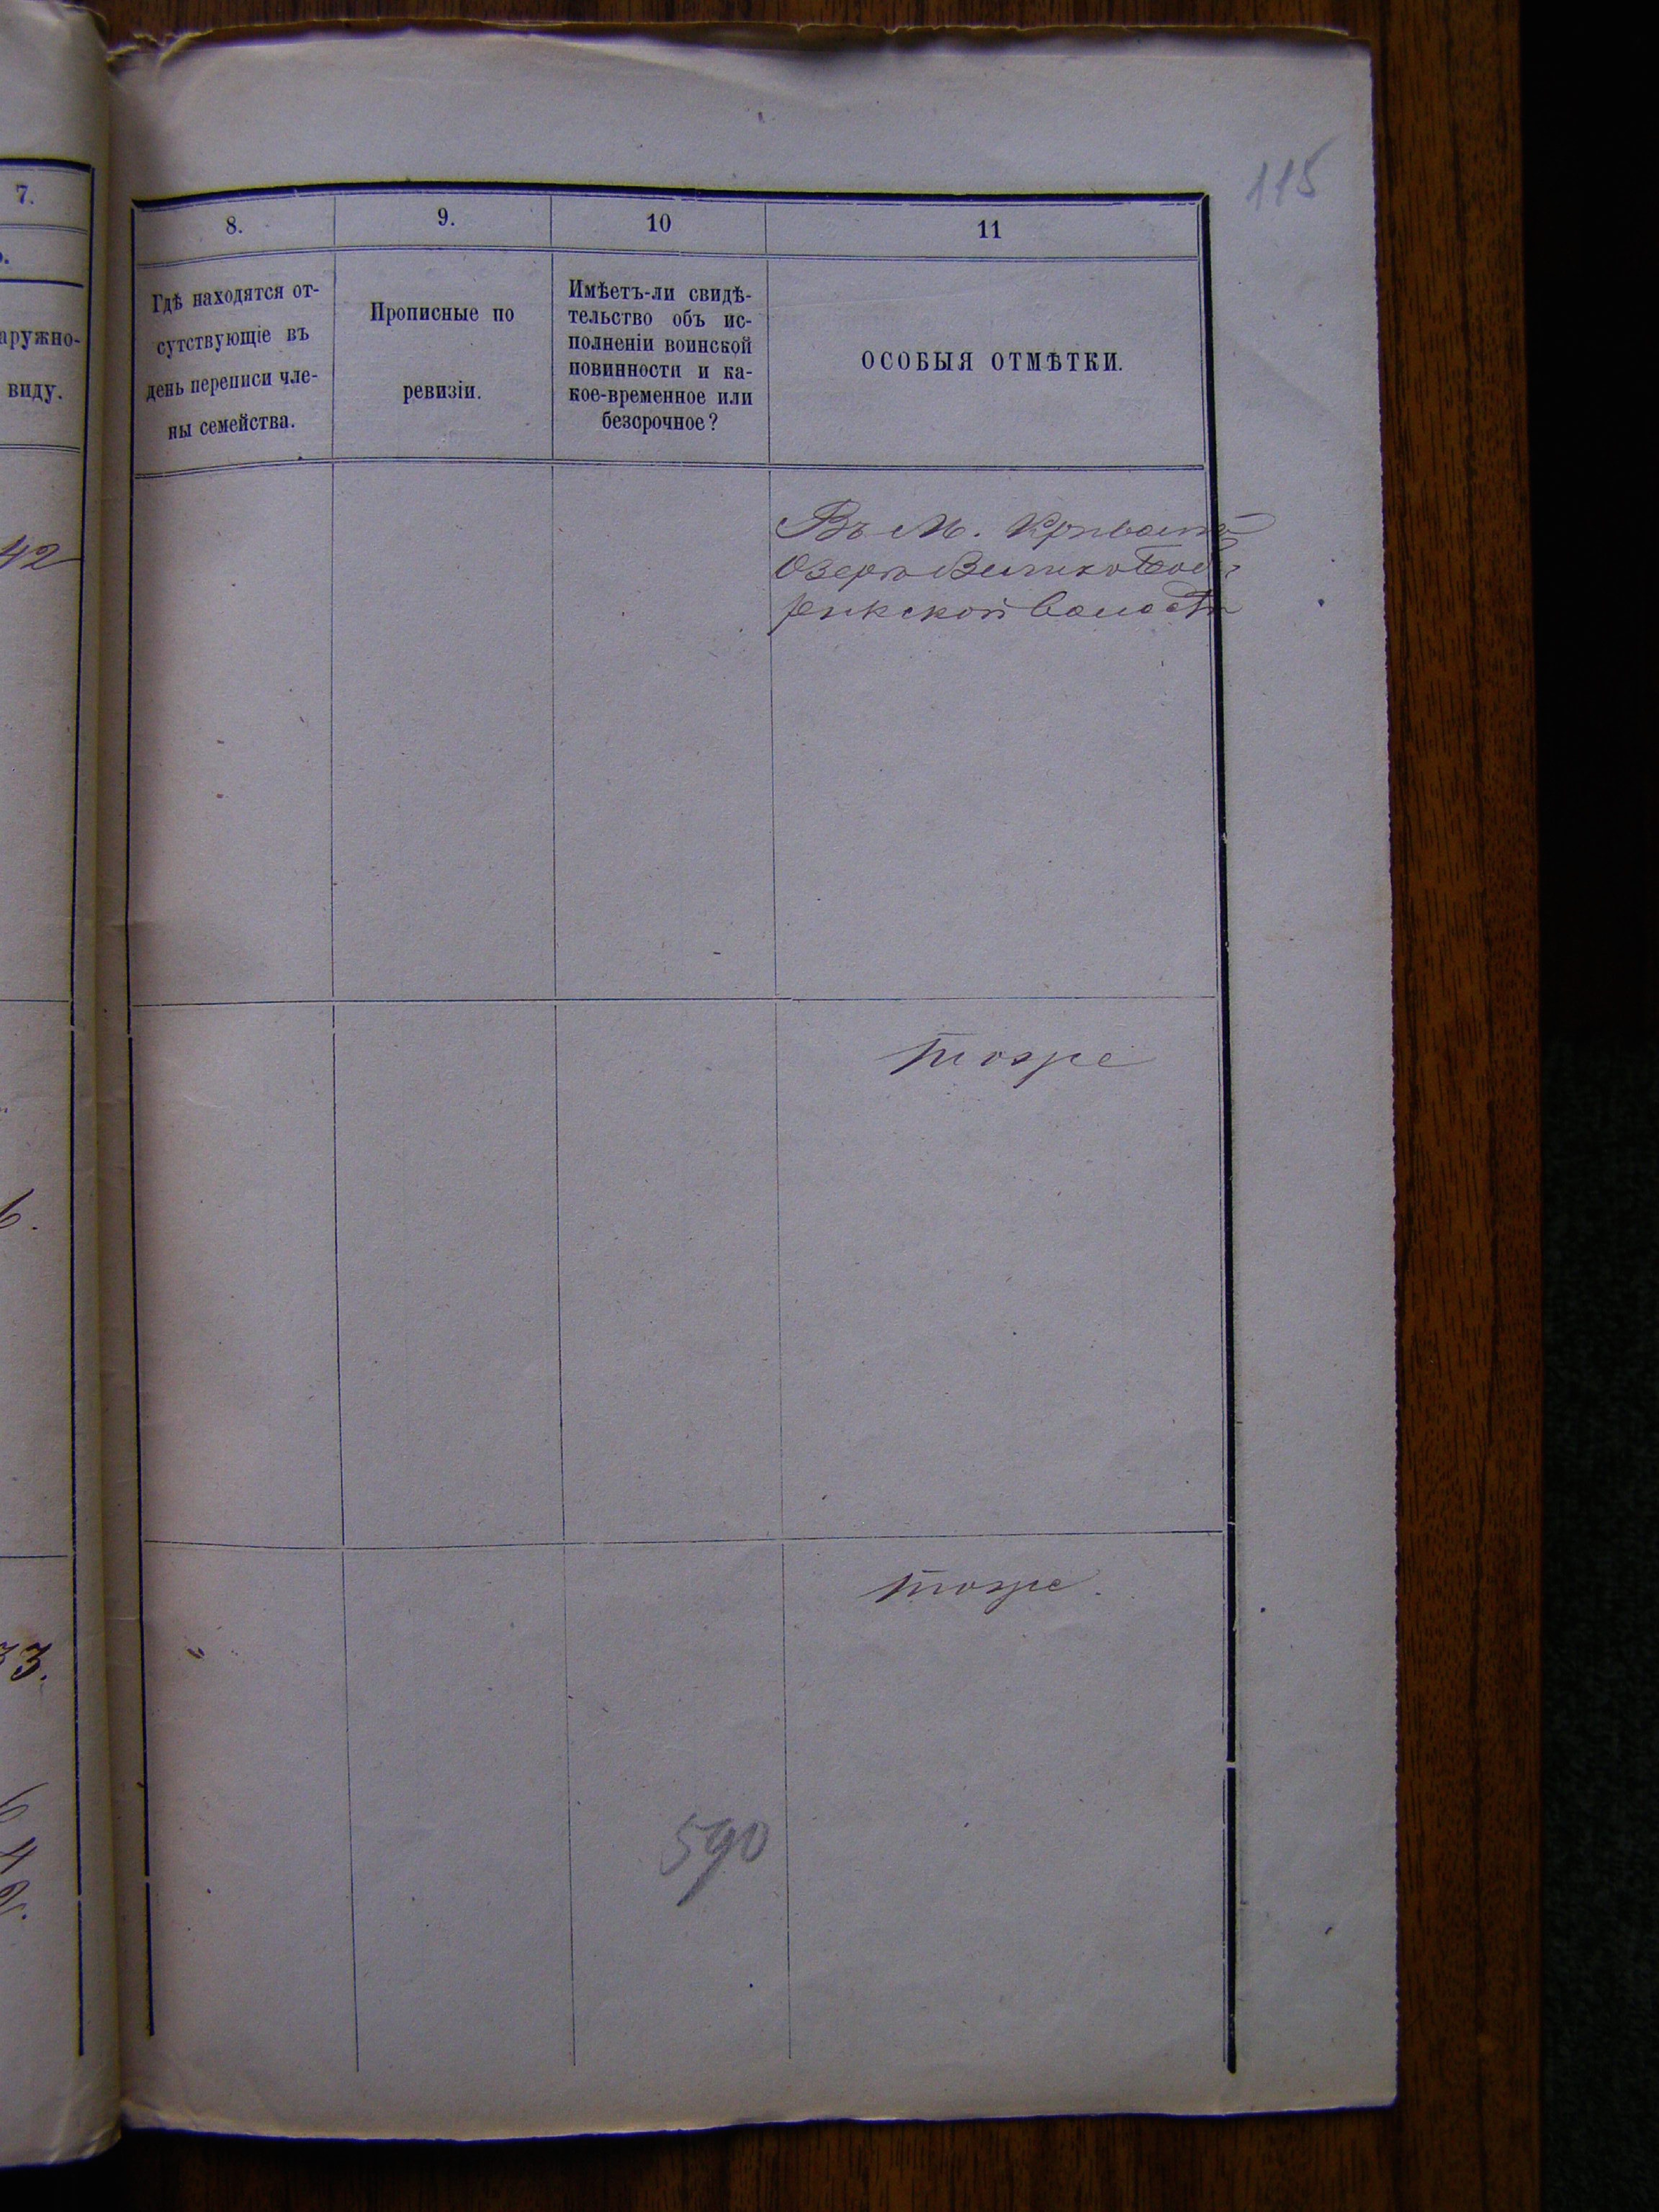 115
7.
8.
9.
10
11
аружно-
виду.
Гдѣ находятся от-
сутствующіе въ
день переписи чле-
ны семейства.
Прописные по
ревизіи.
Имѣетъ-ли свидѣ-
тельство объ ис-
полненіи воинской
повинности и ка-
кое-временное или
безсрочное?
ОСОБЫЯ ОТМѢТКИ.
42
Въ М. Кривомъ
Озерѣ
волости
тоже
6.
тоже.
33.
590